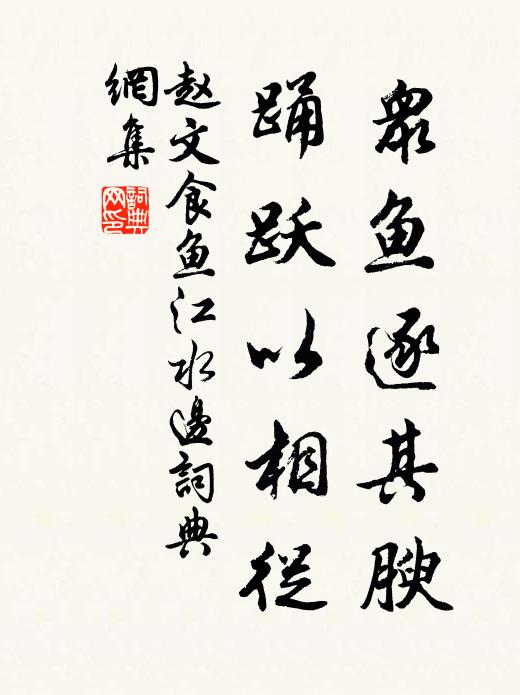 眾鱼逐其腴
踊跃以相從
赵文食鱼江水邊詞典
網集
詞典
网印